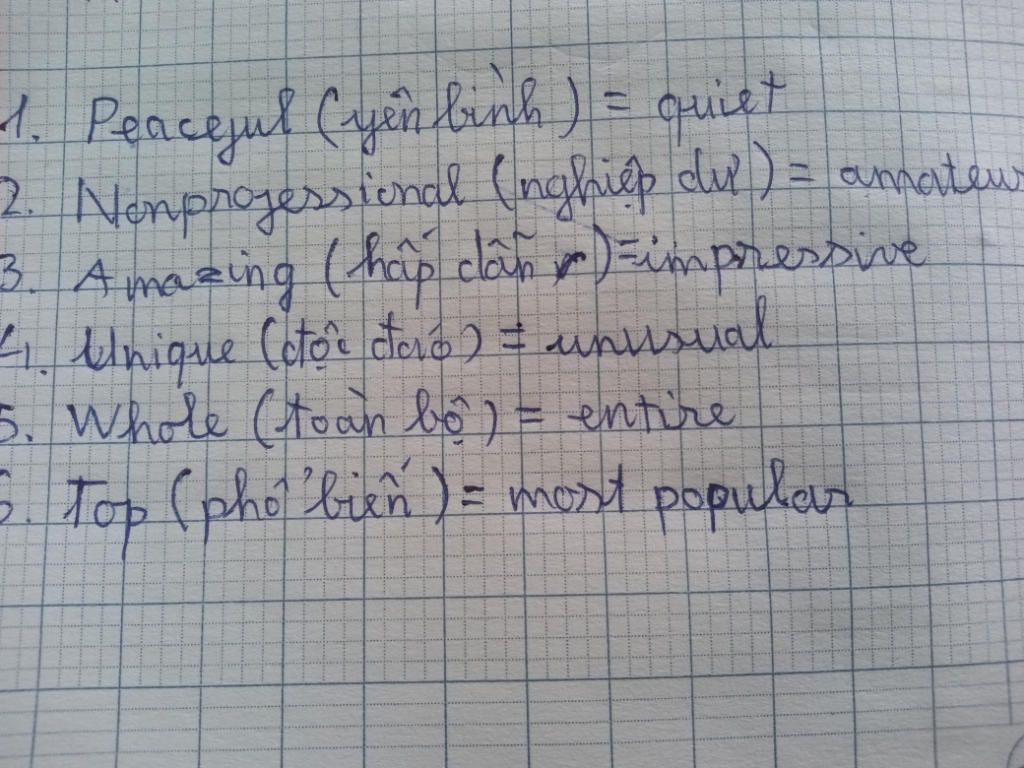 1. Peaceful (yên bình) = quiet
2. Nonprofessional (nghiệp dư) = amateur
3. Amazing (hấp dẫn) = impressive
4. Unique (độc đáo) = unusual
5. Whole (toàn bộ) = entire
6. Top (phổ biến) = most popular